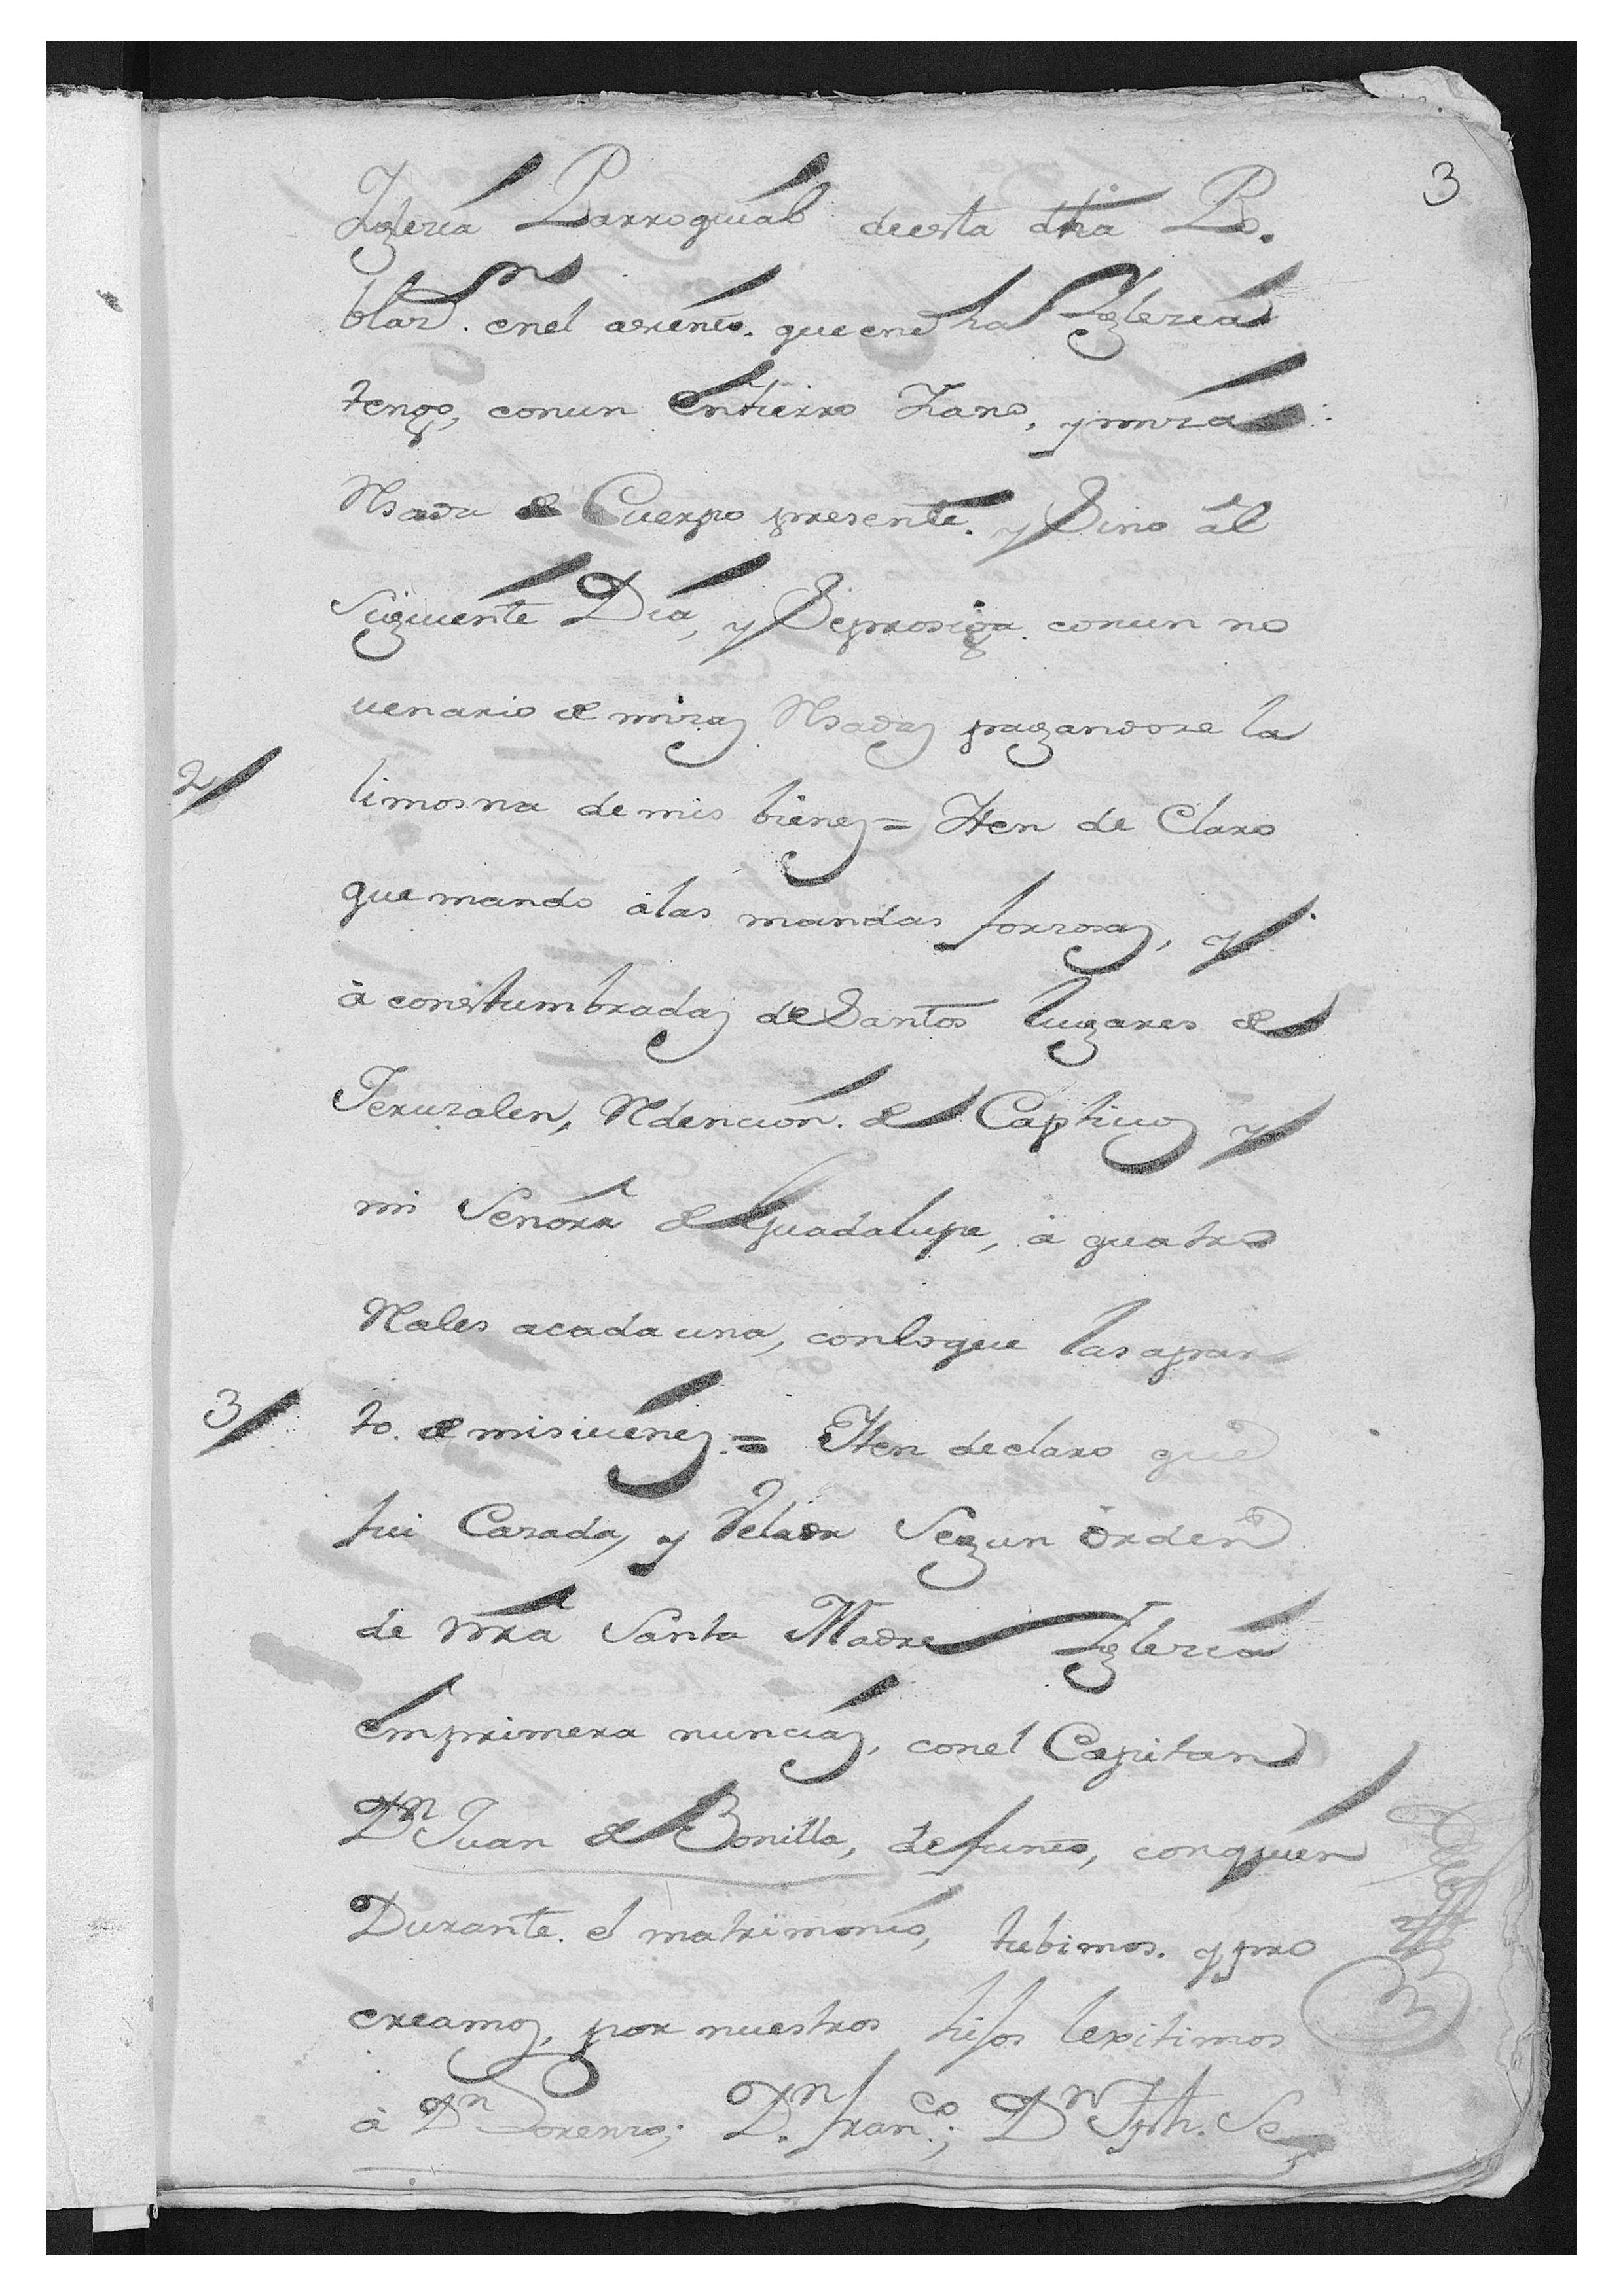 3
Iglecia Parroquial de esta dha Po.
blazn. en el aciento. que en dha Iglecia
tengo, con un entierro Llano, y miza
Rsada de Cuerpo presente. y Sino al
Siguiente Dia, y Seprosiga con un no
uenario de mizas Rsadas pagandose la
2/ limosna de mis bienes = Iten de Claro
que mando a las mandas forzosas, y
a constumbradas de Santos lugares de
Jeruzalen, Rdencion. de Captiuos y
mi Señora de Guadalupe, à quatro
Rales acada una, conloque las apar
3/ to. de mis uienes. = Iten declaro que
fui Cazada, y Velada Segun orden
de nrâ Santa Madre Iglecia
emprimera nuncias, con el Capitan
Dn Juan de Bonilla, defunto, con quien
Durante. el matrimonio, tubimos. y pro
creamos, por nuestros hijos lexitimos
à Dn Lorenzo; Dn. franco.; Dn Jph. Se